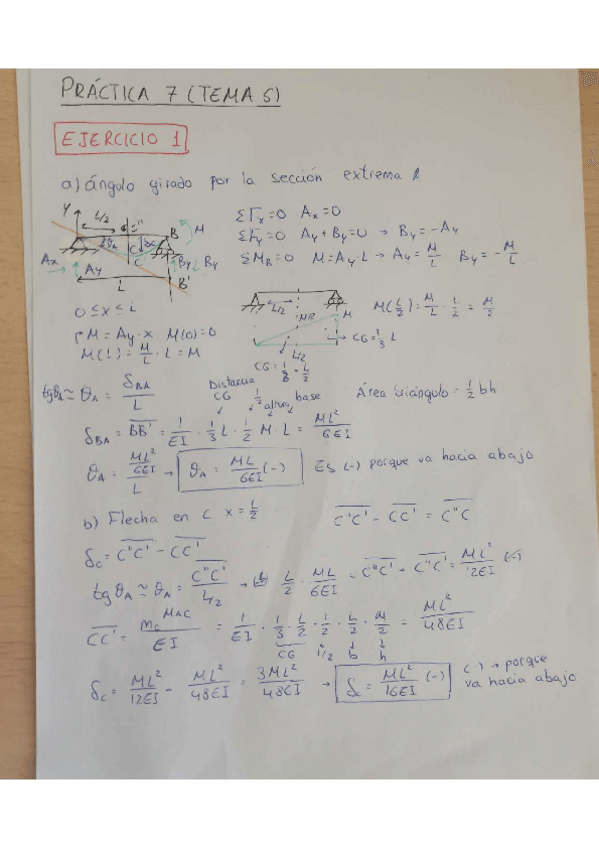 PRÁCTICA 7 (TEMA 5)
EJERCICIO 1
a) ángulo girado por la sección extrema A
Y L/2 C'' B M
ϑA δC C
Ax Ay C' By By
L B'
ΣFx=0 Ax=0
ΣFy=0 Ay+By=0 → By=-Ay
ΣMB=0 M=Ay·L → Ay=M/L By=-M/L
0≤x≤L
M=Ay·x M(0)=0
M(L)=M/L·L=M
L/2 M/2 M
CG=1/3 L
L/2
CG=1/3·L/2
M(L/2)=M/L·L/2=M/2
tgϑA≃ϑA=δBA/L
Distancia CG 1/2 altura base
Área triángulo=1/2 bh
δBA=BB'=1/EI·1/3 L·1/2 M·L=ML²/6EI
ϑA=ML²/6EI/L → ϑA=ML/6EI (-)
ES (-) porque va hacia abajo
b) Flecha en C x=L/2
C''C' - CC' = C''C
δC=C''C' - CC'
tgϑA≃ϑA=C''C'/L/2 → L/2·ML/6EI=C''C' → C''C'=ML²/12EI (-)
CC'=mC MAC/EI=1/EI·1/3·L/2·1/2·L/2·M/2=ML²/48EI
CG 1/2 b h
δC=ML²/12EI - ML²/48EI=3ML²/48EI → δC=ML²/16EI (-)
(-) → porque
va hacia abajo